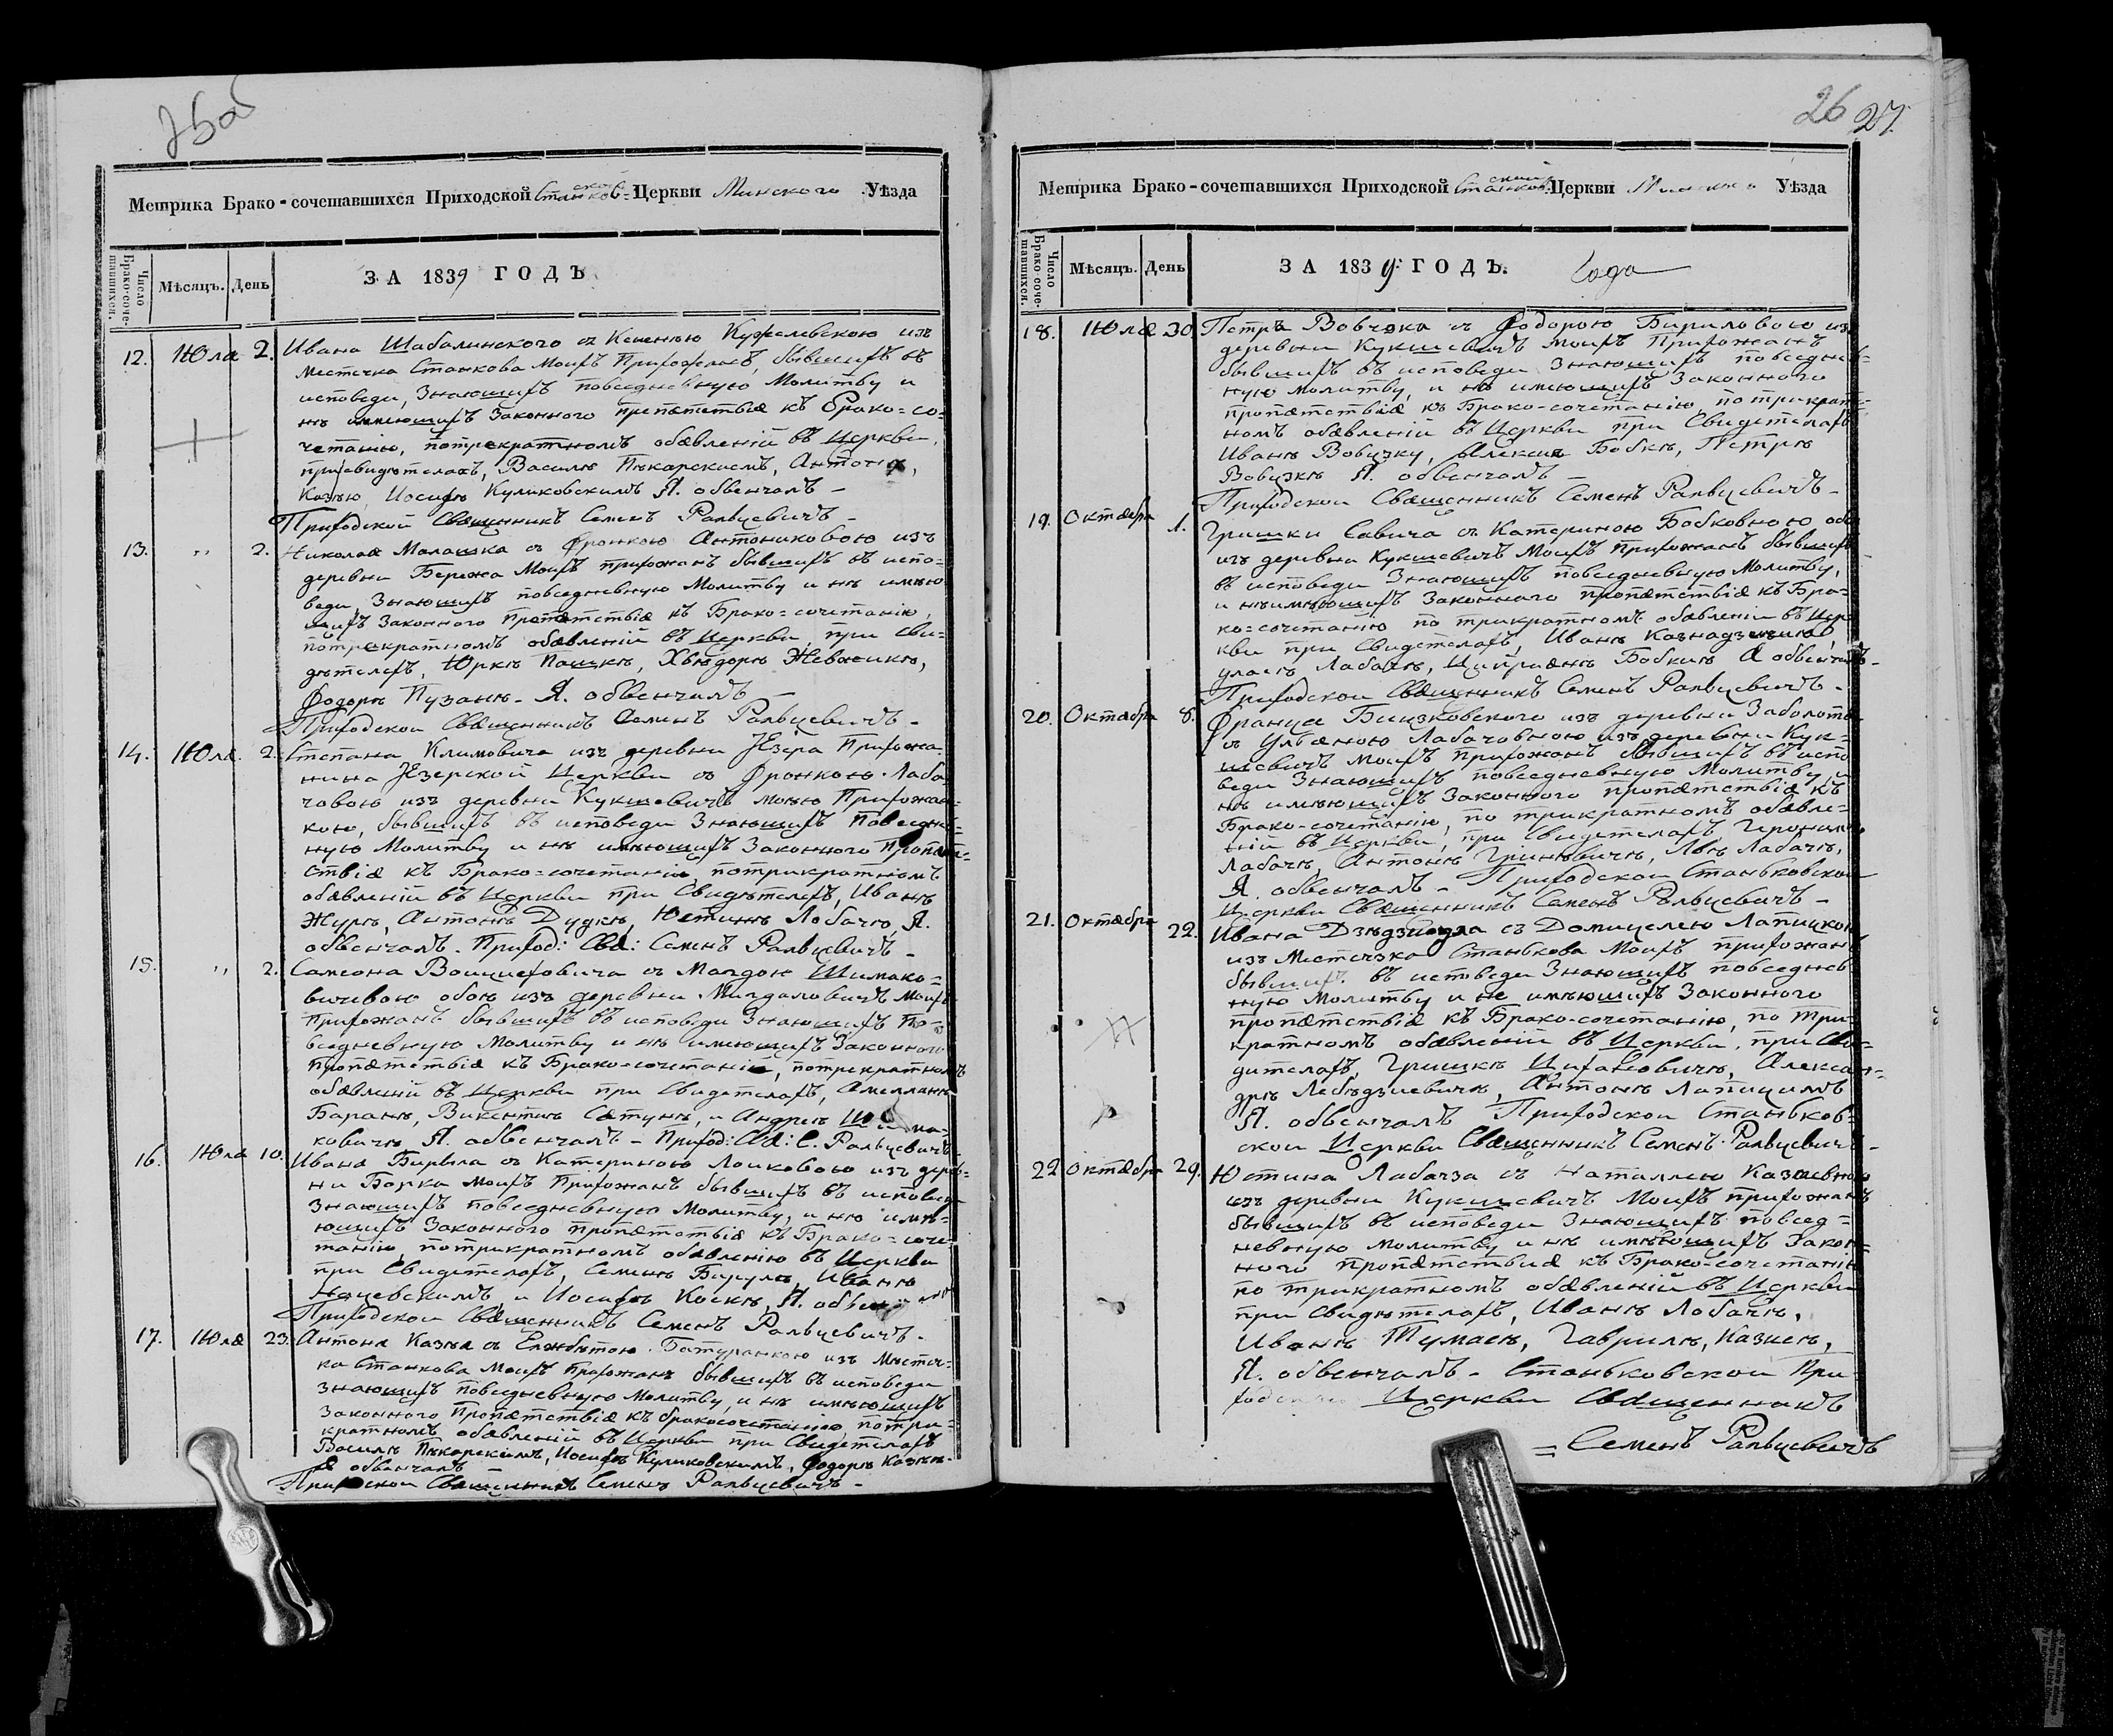 Метрика Брако-сочетавшихся Приходской Станков-ской Церкви Минского Уѣзда
Число Брако-сочетавшихся. Мѣсяцъ. День
ЗА 1839 ГОДЪ
12. Юла 2. Ивана Шабалинского съ Ксенѣю Кужелевскою изъ
местечка Станкова Моихъ Прихожанъ, бывшихъ въ
исповеди, Знающихъ повседневную Молитву и
нѣ имеющихъ Законного препятствія къ Брако=со-
четанію, потрекратномъ обявленій въ Церкви,
присвидѣтеляхъ, Василѣ Пѣкарскиемъ, Антонѣ,
Казѣю, Иосифѣ Куликовскимъ Я. обвенчалъ —
Приходской Священникъ Семенъ Ральцевичъ —
13. „ 2. Николая Малашка съ Фронкою Антониковою изъ
деревни Бережа Моихъ прихожанъ бывшихъ въ испо=
веди, Знающихъ повседневную Молитву и нѣ имѣю
щихъ Законного Пропятствія къ Брако=сочетанію,
потрекратномъ обявленій въ Церкви, при сви-
дѣтеляхъ, Юркѣ Пацкѣ, Хвѣдорѣ Жевжикѣ,
Федорѣ Пузанѣ. Я. обвенчалъ —
Приходской Священникъ Семенъ Ральцевичъ —
14. Юла. 2. Степана Климовича изъ деревни Езера Прихожа
нина Езерской Церкви съ Фронкою Лаба
човою изъ деревни Кукшевичъ моею Прихожан=
кою, бывшихъ въ исповеди Знающихъ Повседнев=
ную Молитву и нѣ имеющихъ Законного Пропят=
ствія къ Брако=сочетанію, потрикратномъ
обявленій въ Церкви при Свидѣтеляхъ, Иванѣ
Журѣ, Антонѣ Дудкѣ, Юстинѣ Лобачѣ, Я.
обвенчалъ. Приход: Свя: Семенъ Ральцевичъ —
15. „ 2. Самсона Воицеховича съ Магдою Шимако=
вичевою обою изъ деревни Мигдаловичъ Моихъ
Прихожанъ бывшихъ въ исповеди Знающихъ По=
вседневную Молитву и нѣ имеющихъ Законного
пропятствія къ Брако=сочетаній, потрекратномъ
обявленій въ Церкви при Свидетеляхъ, Амелляни
Баранѣ, Викентиѣ Сятунѣ, и Андреѣ Шима-
ковичѣ Я. обвенчалъ — Приход: Свя: С. Ральцевичъ
16. Юла 10. Ивана Бирыла съ Катериною Лоиковою изъ дерев=
ни Борка моихъ Прихожанъ бывшихъ въ исповеди
Знающихъ повседневную Молитву, и нѣ имѣ=
ющихъ Законного пропятствія къ Брако=соче=
танію, потрикратномъ обявленію въ Церкви
при Свидетеляхъ, Семенѣ Бирулѣ, Иванѣ
и Иосифѣ Коскѣ, Я. обвенчалъ
Приходской Священникъ Семенъ Ральцевичъ.
17. Юла 23. Антона Казѣя съ Елжбѣтою Батуранкою изъ Мѣстеч=
ка Станкова Моихъ Прихожанъ бывшихъ въ исповеди
Знающихъ Повседневную Молитву, и нѣ имеющихъ
Законного Пропятствія къ бракосочетанію, потри=
кратномъ обявленій въ Церкви при Свидетеляхъ
Василѣ Пѣкарскимъ, Иосифѣ Куликовскимъ, Федорѣ Казѣѣ.
Я обвенчалъ
Приходской Священникъ Семенъ Ральцевичъ —
26 27.
Метрика Брако-сочетавшихся Приходской Станков-ской Церкви Минского Уѣзда
Число Брако-сочетавшихся. Мѣсяцъ. День
ЗА 1839 ГОДЪ. Года
18. Юля 30. Петра Вовчока съ Федорою Бириловою изъ
деревни Кукшевичъ Моихъ Прихожанъ
бывшихъ въ исповеди Знающихъ повседнев-
ную молитву, и нѣ имеющихъ Законного
пропятствія къ Брако-сочетанію потрикрат=
номъ обявленій въ Церкви при Свидетеляхъ
Иванѣ Вовчзку, Алексиѣ Бобкѣ, Петрѣ
Вовчзкѣ Я. обвенчалъ —
Приходской Священникъ Семенъ Ральцевичъ —
19. Октября 1. Гришки Савича съ Катериною Бобковною обо
изъ деревни Кукшевичъ Моихъ Прихожанъ бывшихъ
въ исповеди Знающихъ повседневную Молитву,
и нѣимѣющихъ Законного пропятствія къ Бра-
ко=сочетанію по трикратномъ обявленіи въ Цер
кви при Свидетеляхъ, Иванѣ Казнадзѣѣмъ,
Лабачѣ, Циприянѣ Бобкиѣ Я обвенчалъ —
Приходской Священникъ Семенъ Ральцевичъ —
20. Октября 8. Франца Бицзковского изъ деревни Заболотя
съ Ульяною Лабачовною изъ деревни Кук=
шевичъ моихъ прихожанъ бывшихъ въ испо
веди Знающихъ повседневную Молитву и
нѣ имѣющихъ Законного пропятствія къ
Брако-сочетанію, по трикратномъ обявле=
ніи въ Церкви, при Свидетеляхъ Геронимѣ
Лабачѣ, Антонѣ Гриневичѣ, Лвѣ Лабачѣ,
Я. обвенчалъ — Приходской Станьковской
Церкви Священникъ Семенъ Ральцевичъ —
21. Октября 22. Ивана съ Домицелею Лапицкою
изъ Местечка Станькова Моихъ прихожанъ
бывшихъ въ исповеди Знающихъ повседнев
ную Молитву и не имѣющихъ Законного
пропятствія къ Брако-сочетанію, по три
кратномъ обявленій въ Церкви, при Сви=
дителяхъ, Гришкѣ Цихановичѣ, Алексан=
дрѣ Лебѣдзиевичѣ, Антонѣ Лапицимъ
Я. обвенчалъ Приходской Станьков=
ской Церкви Священникъ Семенъ Ральцевичъ —
22 Октября 29. Юстина Лабачза съ Наталлею Казаевною
изъ деревни Кукшевичъ Моихъ прихожанъ
бывшихъ въ исповеди Знающихъ повсед=
невную Молитву и нѣ имѣющихъ Закон=
ного пропятствия къ Брако-сочетанію
по трикратномъ обявленій въ Церкви
при Свидѣтеляхъ, Иванѣ Лобачѣ,
Иванѣ Тумаѣ, Гаврилѣ, Казиеѣ,
Я. обвенчалъ — Станьковской При
ходской Церкви Священникъ
= Семенъ Ральцевичъ